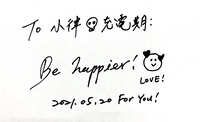 To 小律 充電期:
Be happier!
LOVE!
2021.05.20 For You!